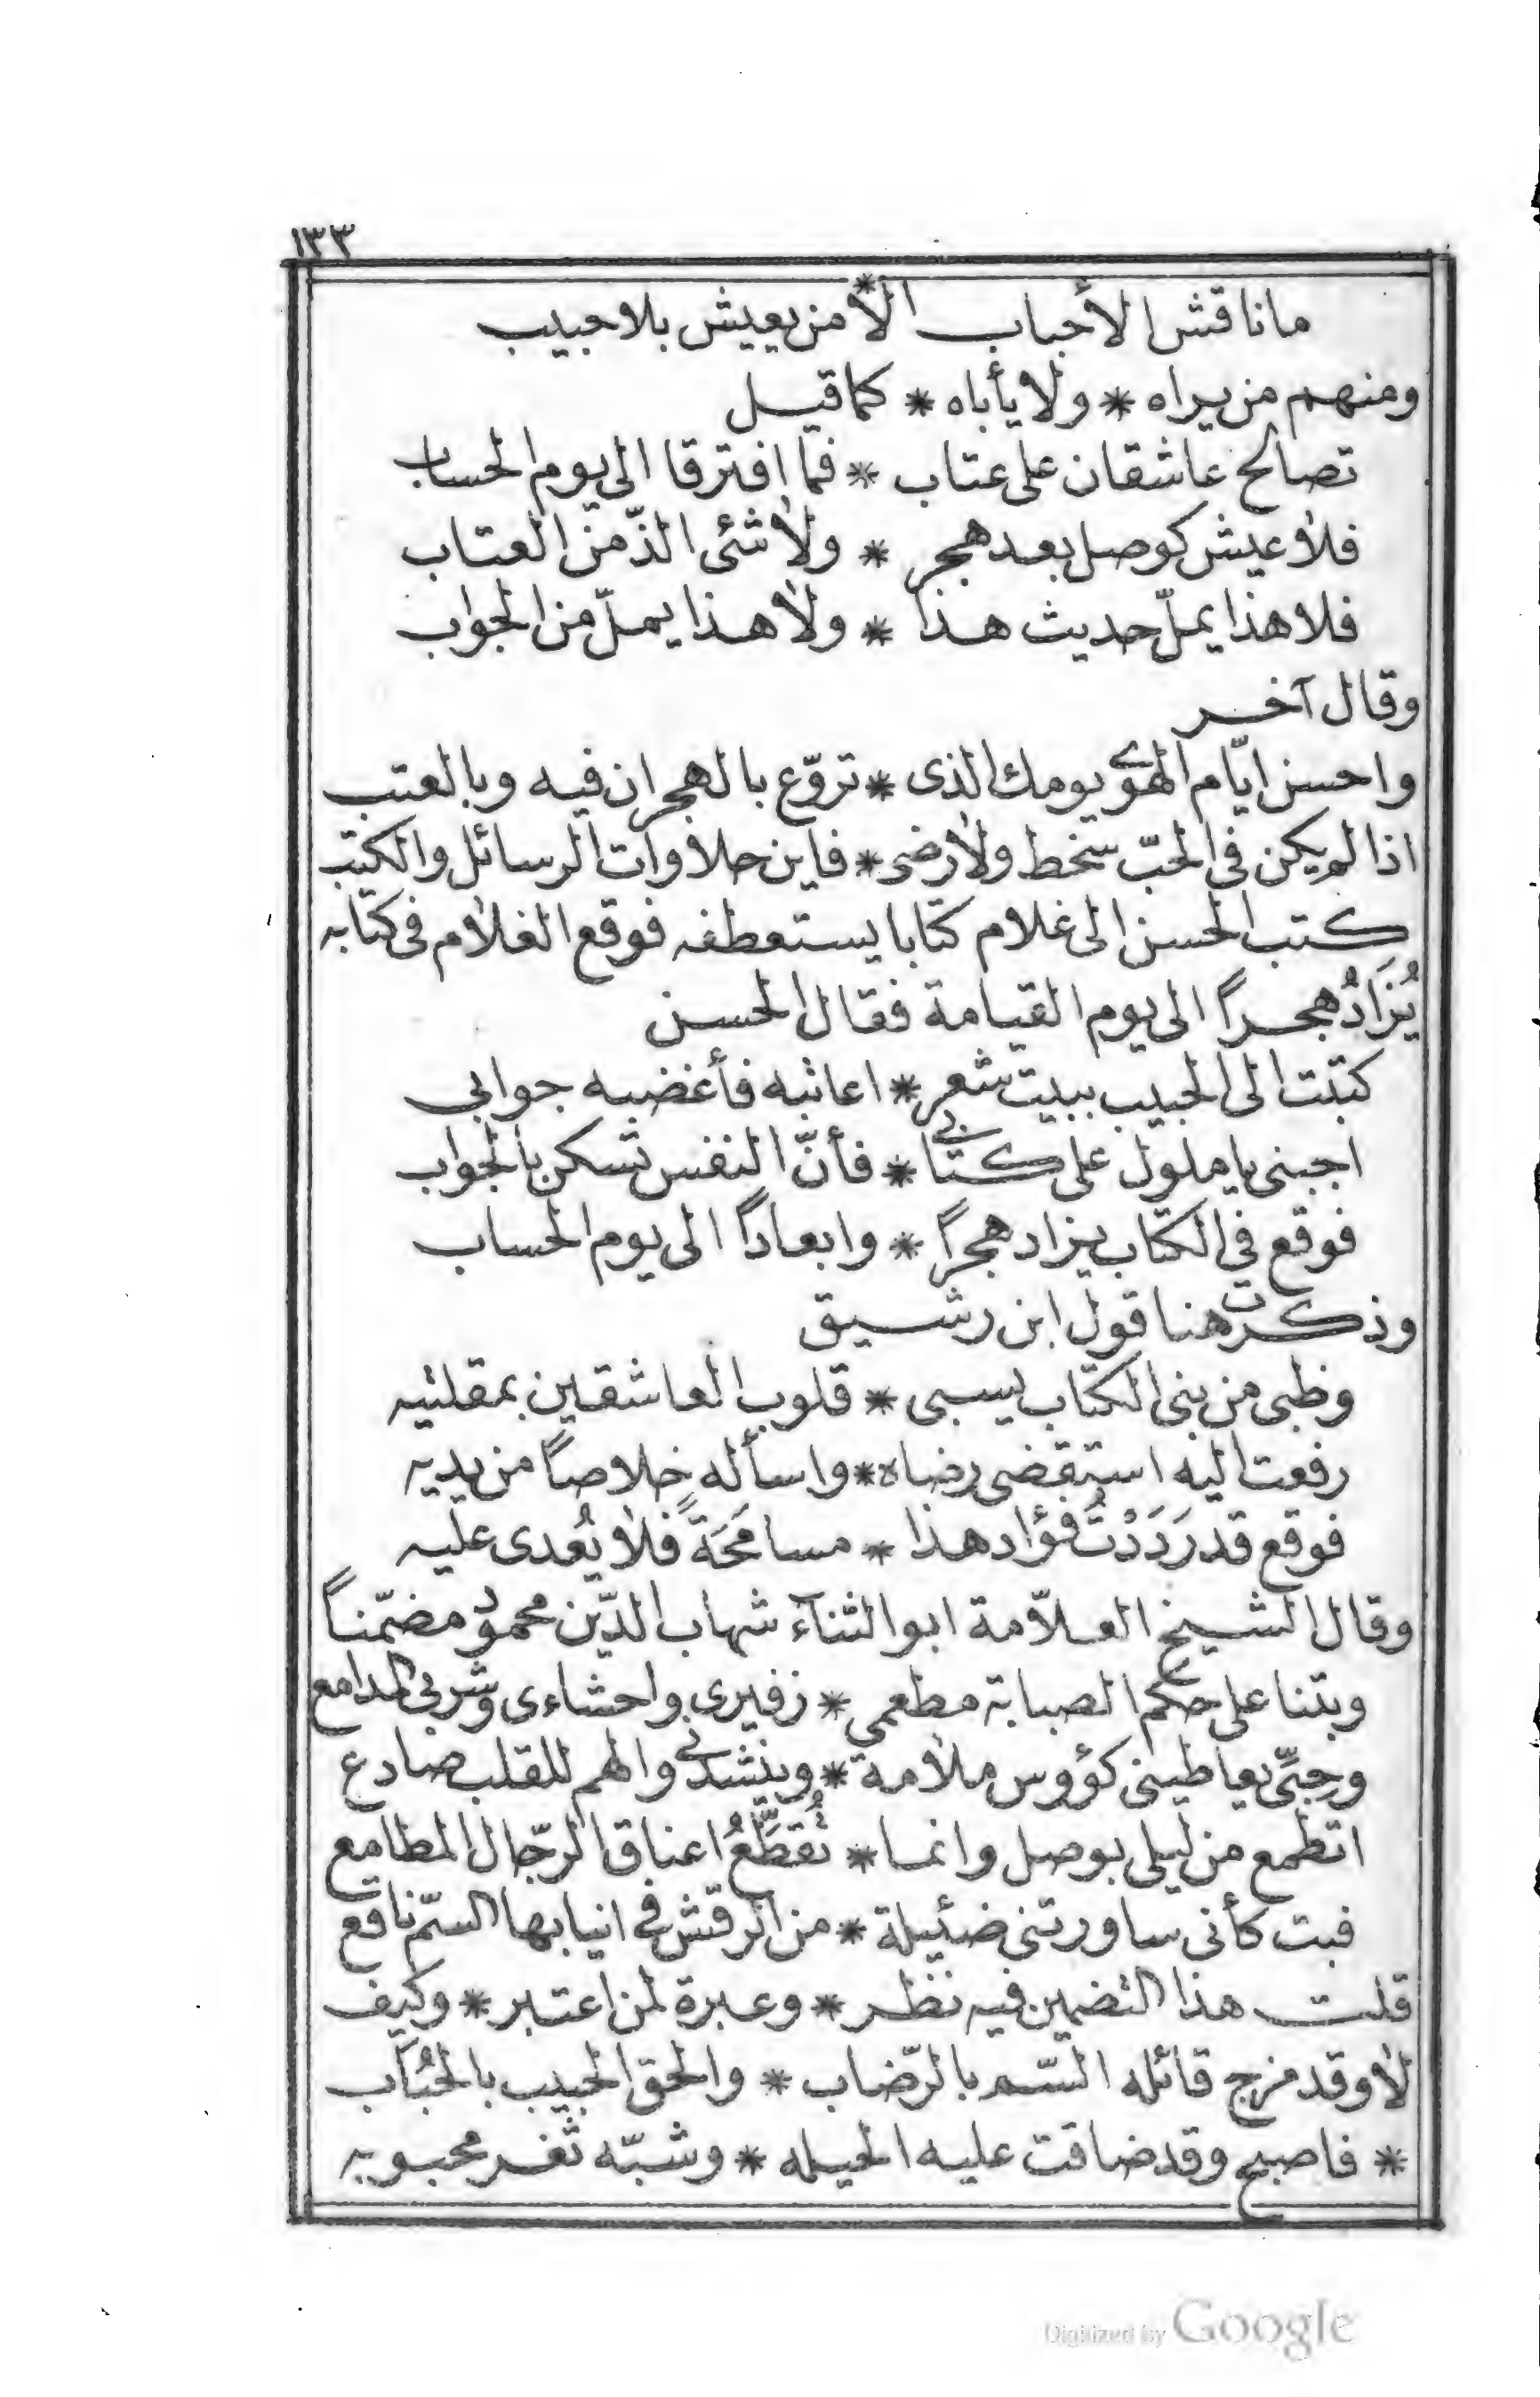 ١٣٣
ما ناقش الأحباب * الّا من يعيش بلا حبيب
ومنهم من يراه * ولا يأباه * كما قيل
تصالح عاشقان على عتاب * فما افترقا الى يوم الحساب
فلا عيش كوصل بعد هجر * ولا شئ الذّ من العتاب
فلا هذا يملّ حديث هذا * ولا هذا يملّ من الجواب
وقال آخر
واحسن ايّام الهوى يومك الذى * تروّع بالهجران فيه وبالعتب
اذا لم يكن فى الحبّ سخط ولا رضى * فاين حلاوات الرسائل والكتب
كتب الحسن الى غلام كتابا يستعطفه فوقع الغلام فى كتابه
يُزَادُ هجراً الى يوم القيامة فقال الحسن
كتبت الى الحبيب ببيت شعر * اعاتبه فأغضبه جوابي
اجبنى يا ملول على كتابي * فأنّ النفس تسكن بالجواب
فوقع في الكتاب يزاد هجراً * وابعاداً الى يوم الحساب
وذكرت هنا قول ابن رشيق
وظبى من بنى الكتّاب يسبى * قلوب العاشقين بمقلتيه
رفعت اليه استقضى رضاه * واسأله خلاصاً من يديه
فوقع قد رَدَدْتُ فؤاد هذا * مسامَحَةً فلا يُعدى عليه
وقال الشيخ العلاّمة ابو الثنآء شهاب الدّين محمود مضمّناً
وبتنا على حكم الصبابة مطعمى * زفيرى واحشاءى وشربي المدامع
وحبّى يعاطينى كؤوس ملامة * وينشدني والهم للقلب صادع
اتطمع من ليلى بوصل وانما * تُقطِّعُ اعناق الرجّال المطامع
فبت كأنى ساورتنى ضئيلة * من الرقش في انيابها السّم ناقع
قلت هذا التضمين فيه نظر * وعبرة لمن اعتبر * وكيف
لا وقد مزج قائله السّم بالرّضاب * والحق الحبيب بالحُبَاب
* فاصبح وقد ضاقت عليه الحيله * وشبّه ثغر محبوبه
Digitized by Google